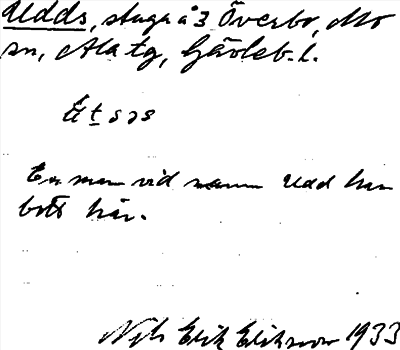 Udds, stuga å 3 Överbo, Mo
sn, Ala tg, Gävleb. l.
En man vid namn Udd har
bott här.
Nils Erik Eriksson 1933